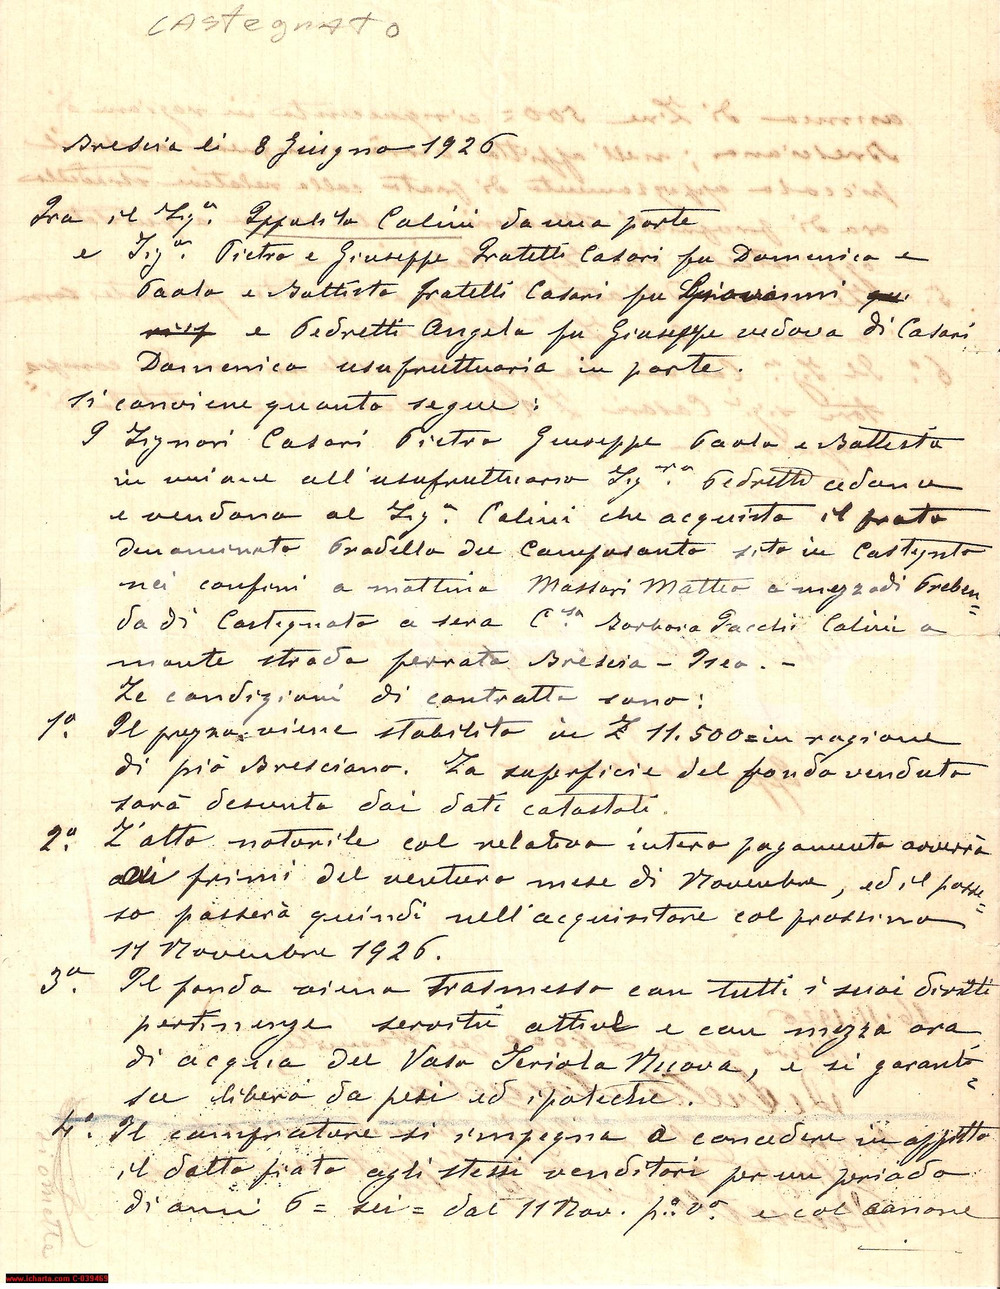 CASTEGNATO
Brescia li 8 Giugno 1926
Tra il Sigr. Ippolito Calini da una parte
e Sigri. Pietro e Giuseppe Fratelli Casari fu Domenico e
Paolo e Battista fratelli Casari fu Giovanni
e Pedretti Angela fu Giuseppe vedova di Casari
Domenico usufruttuaria in parte.
Si conviene quanto segue:
I Signori Casari Pietro Giuseppe Paolo e Battista
in unione all'usufruttuaria Sigra. Pedretti cedono
e vendono al Sigr. Calini che acquista il prato
denominato Pradella del Camposanto sito in Castegnato
nei confini a mattina Massari Matteo a mezzodì Preben=
da di Castegnato a sera Csa Barbara Facchi Calini a
monte strada ferrata Brescia - Iseo. -
Le condizioni di contratto sono:
1o. Il prezzo viene stabilito in £ 11.500= in ragione
di piò Bresciano. La superficie del fondo venduto
sarà desunta dai dati catastali.
2o. L'atto notarile col relativo intero pagamento avverrà
ai primi del venturo mese di Novembre, ed il posse=
so passerà quindi nell'acquisitore col prossimo
11 Novembre 1926.
3o. Il fondo viene trasmesso con tutti i suoi diritti
pertinenze servitù attive e con mezza ora
di acqua del Vaso Seriola Nuova, e si garanti=
sce libero da pesi ed ipoteche.
4o. Il compratore si impegna a concedere in affitto
il detto prato agli stessi venditori per un periodo
di anni 6= sei= dal 11 Nov. po. vo. e col canone
www.icharta.com C-039469